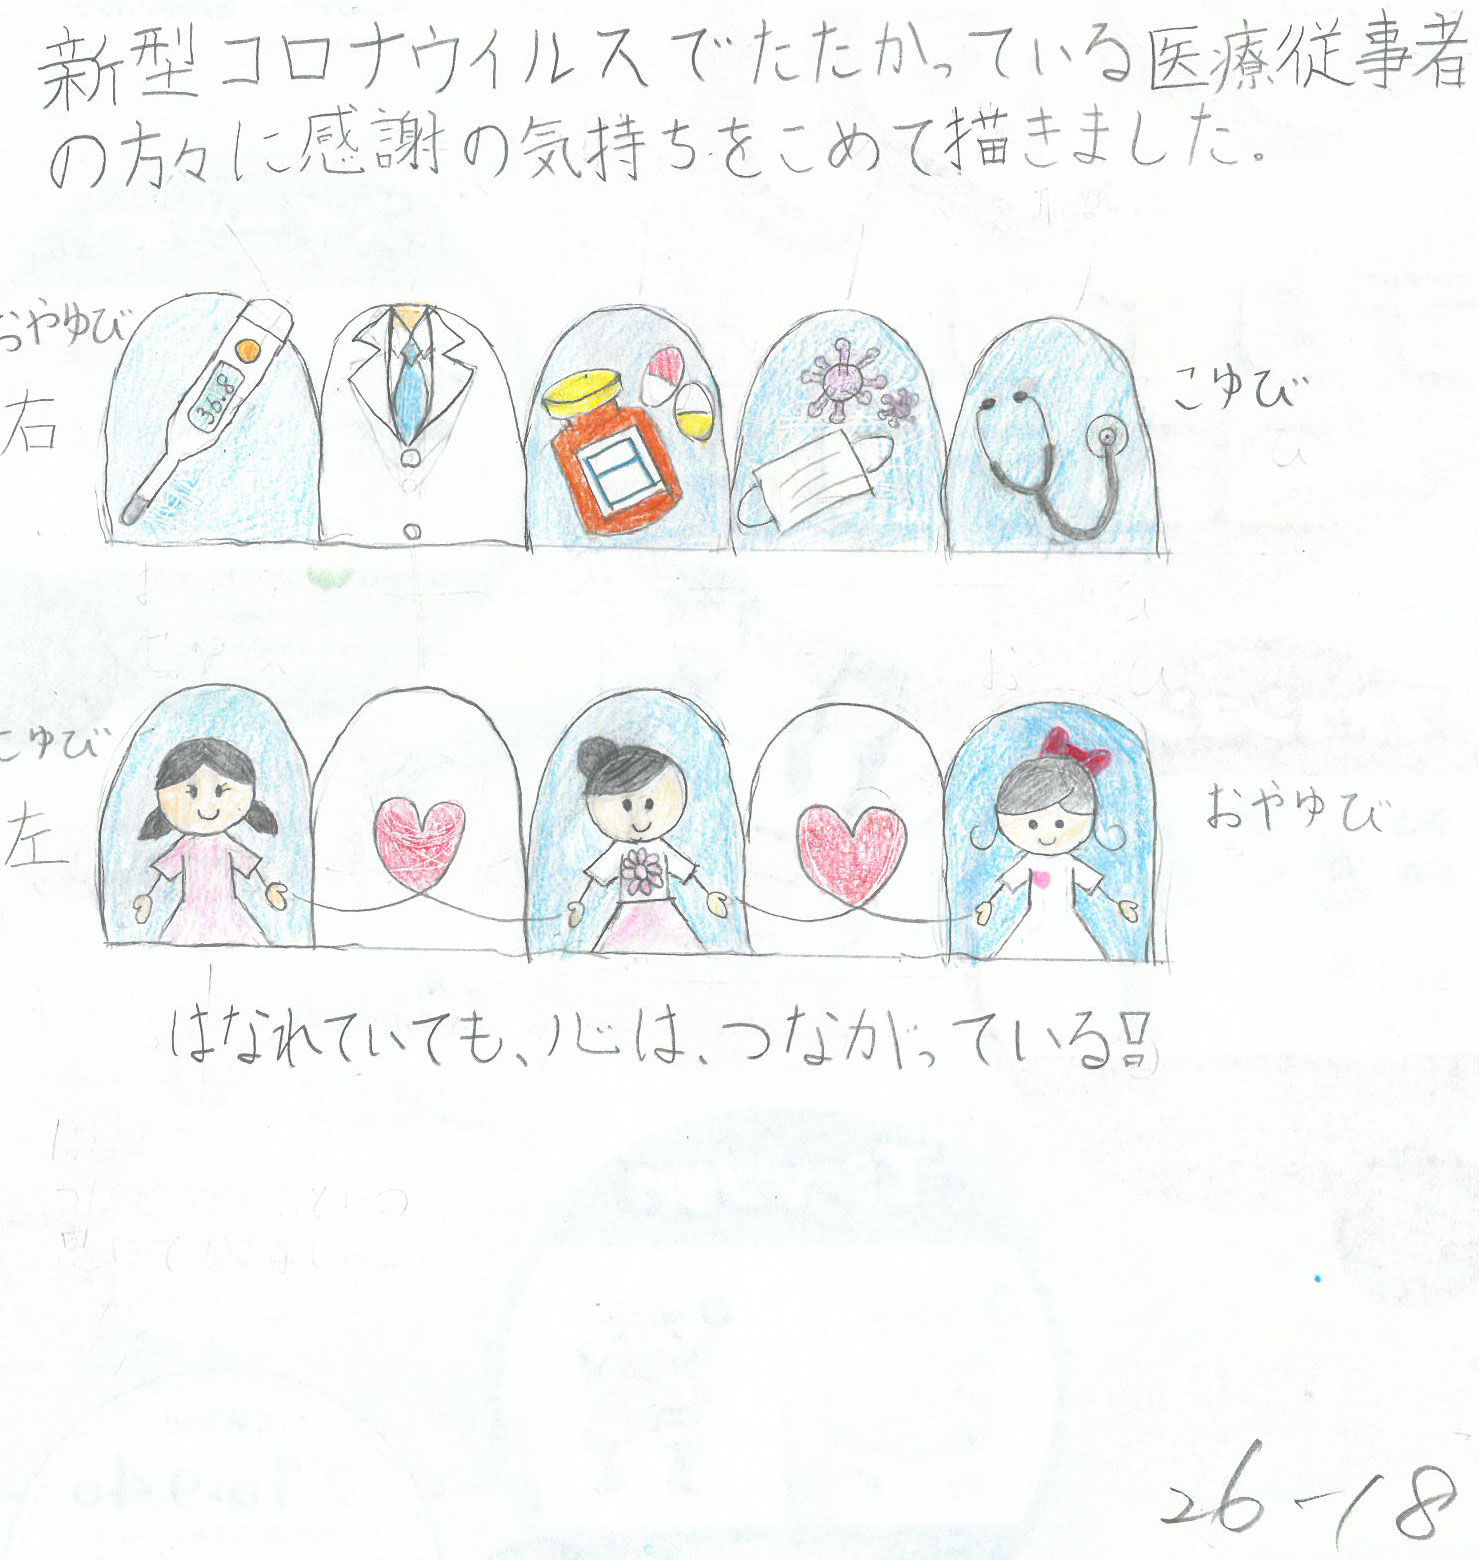 新型コロナウイルスでたたかっている医療従事者
の方々に感謝の気持ちをこめて描きました。
おやゆび
右
36.8
こゆび
こゆび
左
おやゆび
はなれていても、心は、つながっている!!
26-18